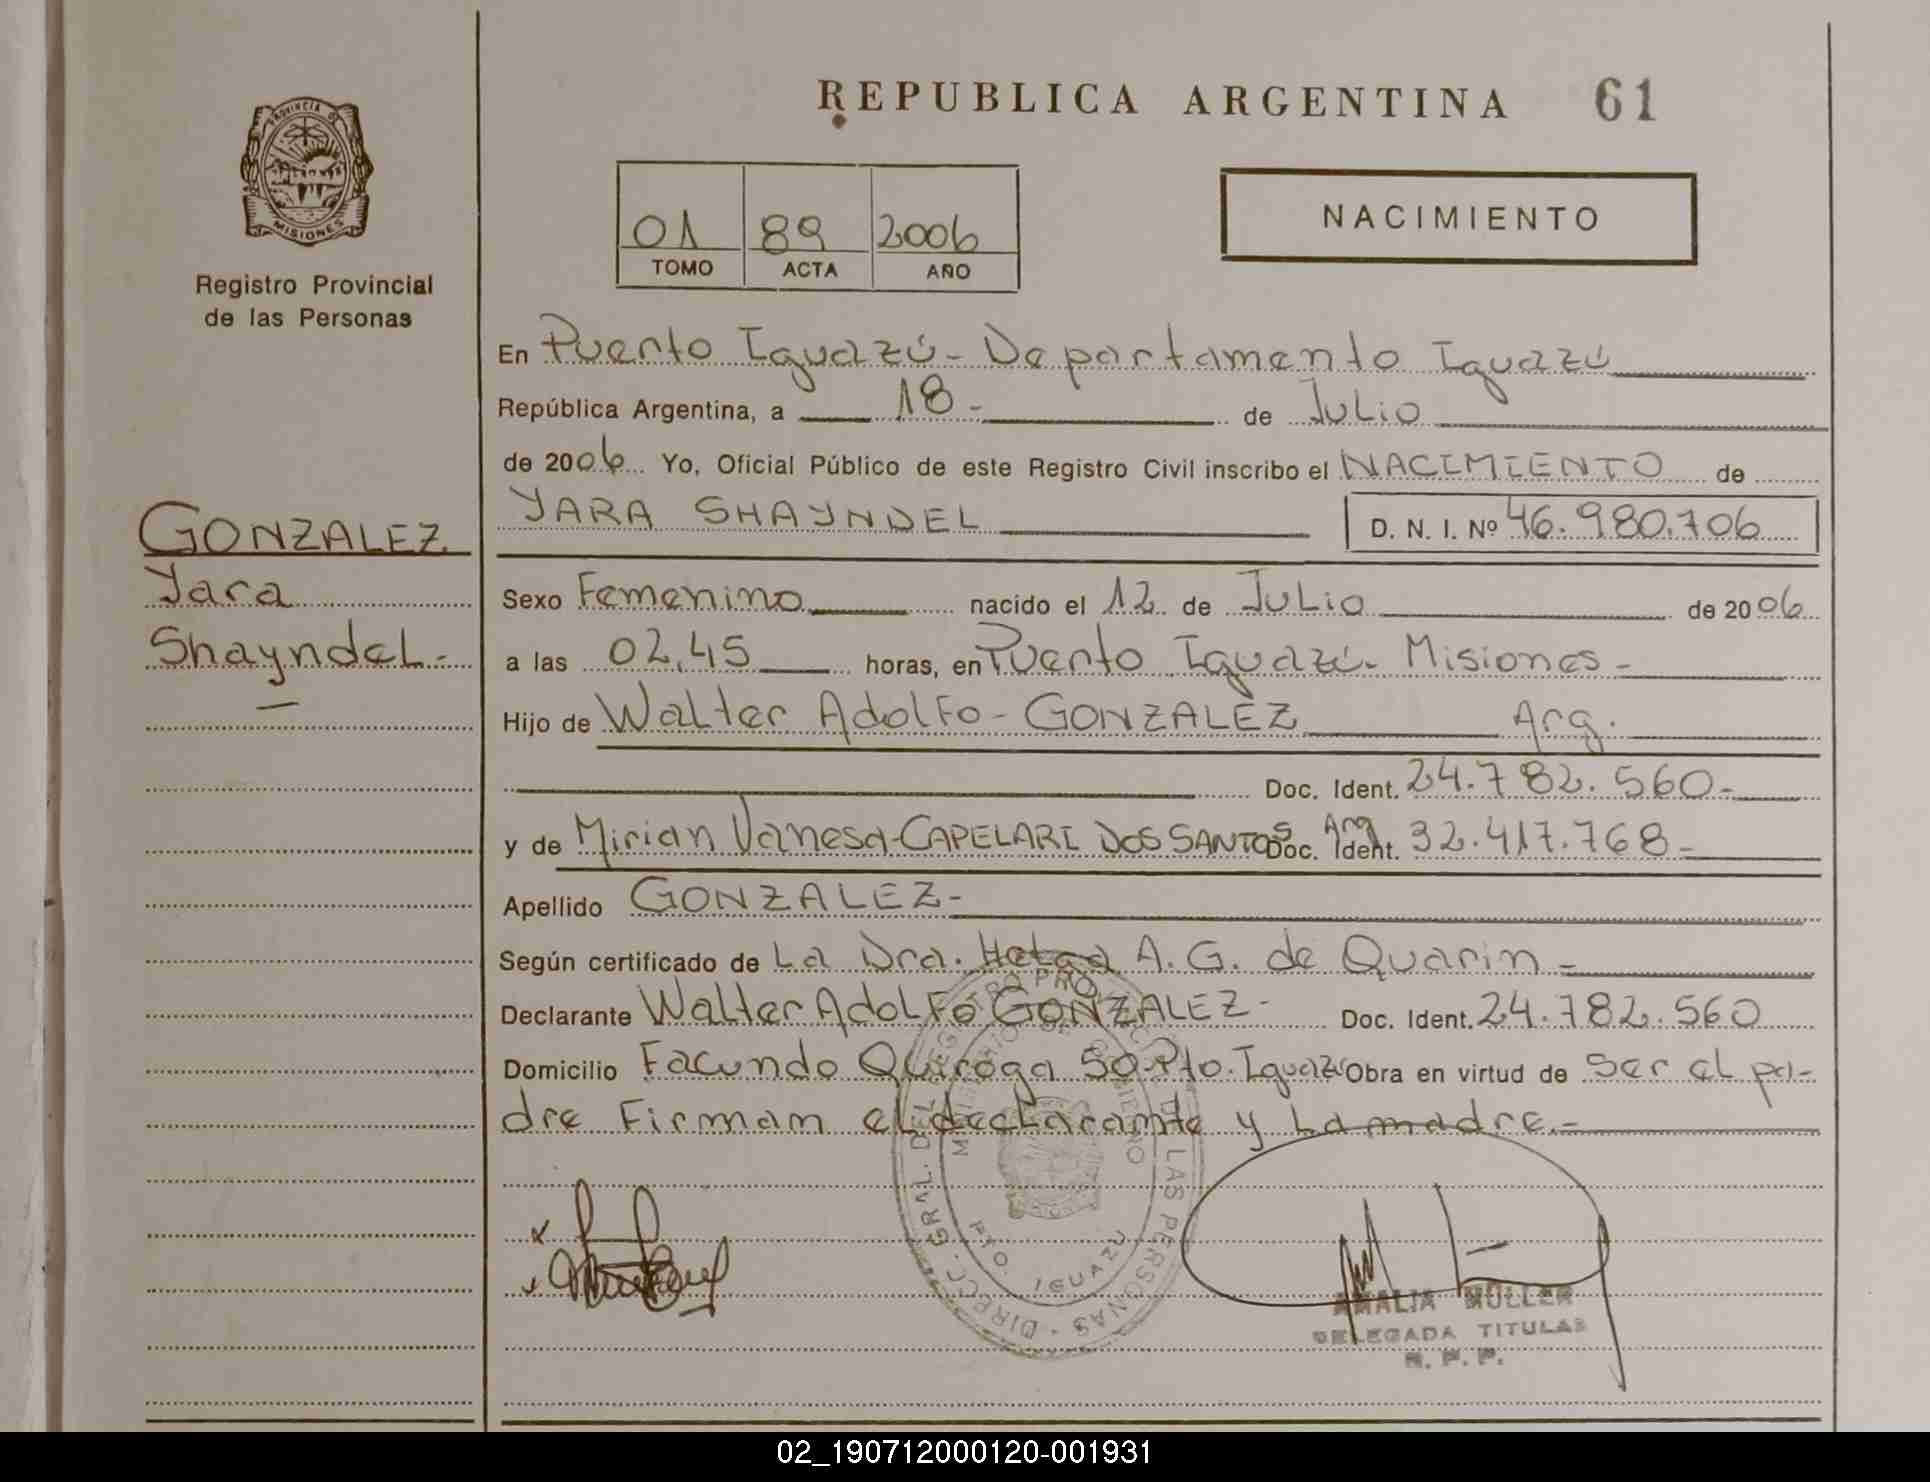 REPUBLICA ARGENTINA 61
PROVINCIA DE MISIONES
Registro Provincial
de las Personas
01 89 2006
TOMO ACTA AÑO
NACIMIENTO
En Puerto Iguazú - Departamento Iguazú
República Argentina, a 18 - de Julio
de 2006 Yo, Oficial Público de este Registro Civil inscribo el NACIMIENTO de
YARA SHAYNDEL D. N. I. Nº 46.980.706
GONZALEZ
Yara
Shayndel -
Sexo Femenino nacido el 12 de Julio de 2006
a las 02,45 horas, en Puerto Iguazú - Misiones -
Hijo de Walter Adolfo - GONZALEZ Arg.
Doc. Ident. 24.782.560-
y de Mirian Vanesa - CAPELARI DOS SANTOS Arg. Doc. Ident. 32.417.768 -
Apellido GONZALEZ -
Según certificado de La Dra. Helga A. G. de Quarin -
Declarante Walter Adolfo GONZALEZ - Doc. Ident. 24.782.560
Domicilio Facundo Quiroga 50 - Pto. Iguazú Obra en virtud de ser el pa-
dre Firman el declarante y la madre.-
DIRECC. GRAL. DEL REGISTRO PROVINCIAL DE LAS PERSONAS
MINISTERIO DE GOBIERNO
PTO. IGUAZU
AMALIA MÜLLER
DELEGADA TITULAR
R. P. P.
02_190712000120-001931